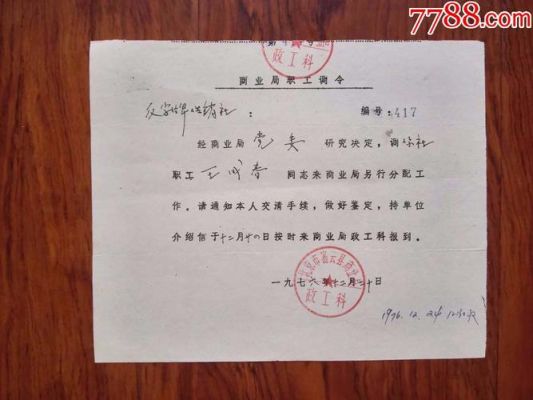 7788.com
政工科
商业局职工调令
供销社：
编号：417
经商业局 党委 研究决定，调你社
职工 王成春 同志来商业局另行分配工
作。请通知本人交清手续，做好鉴定，持单位
介绍信于十二月 日按时来商业局政工科报到。
北京市密云县商业局
政工科
一九七六年十二月二十日
1976.12.24